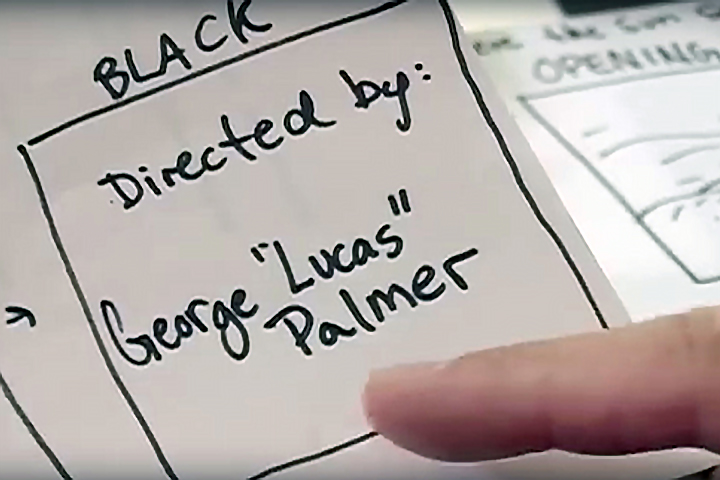 BLACK
Directed by:
George "Lucas"
Palmer
the Sun
OPENING